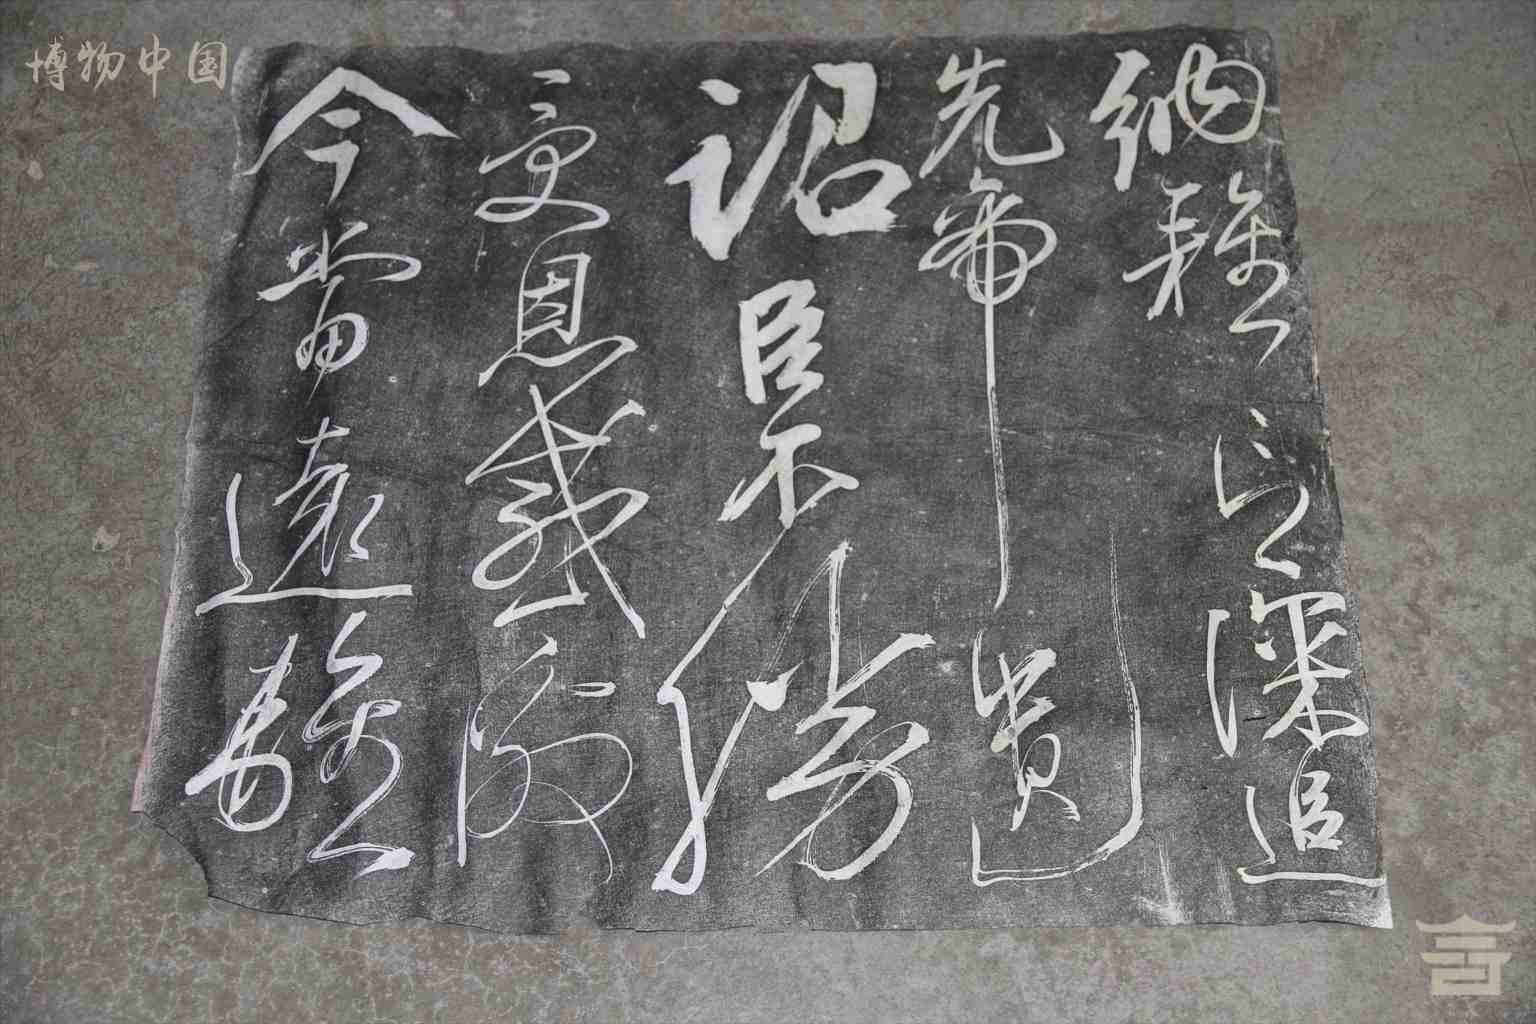 博物中国
納雅言深追
先帝遺
詔臣不勝
受恩感激
今當遠離